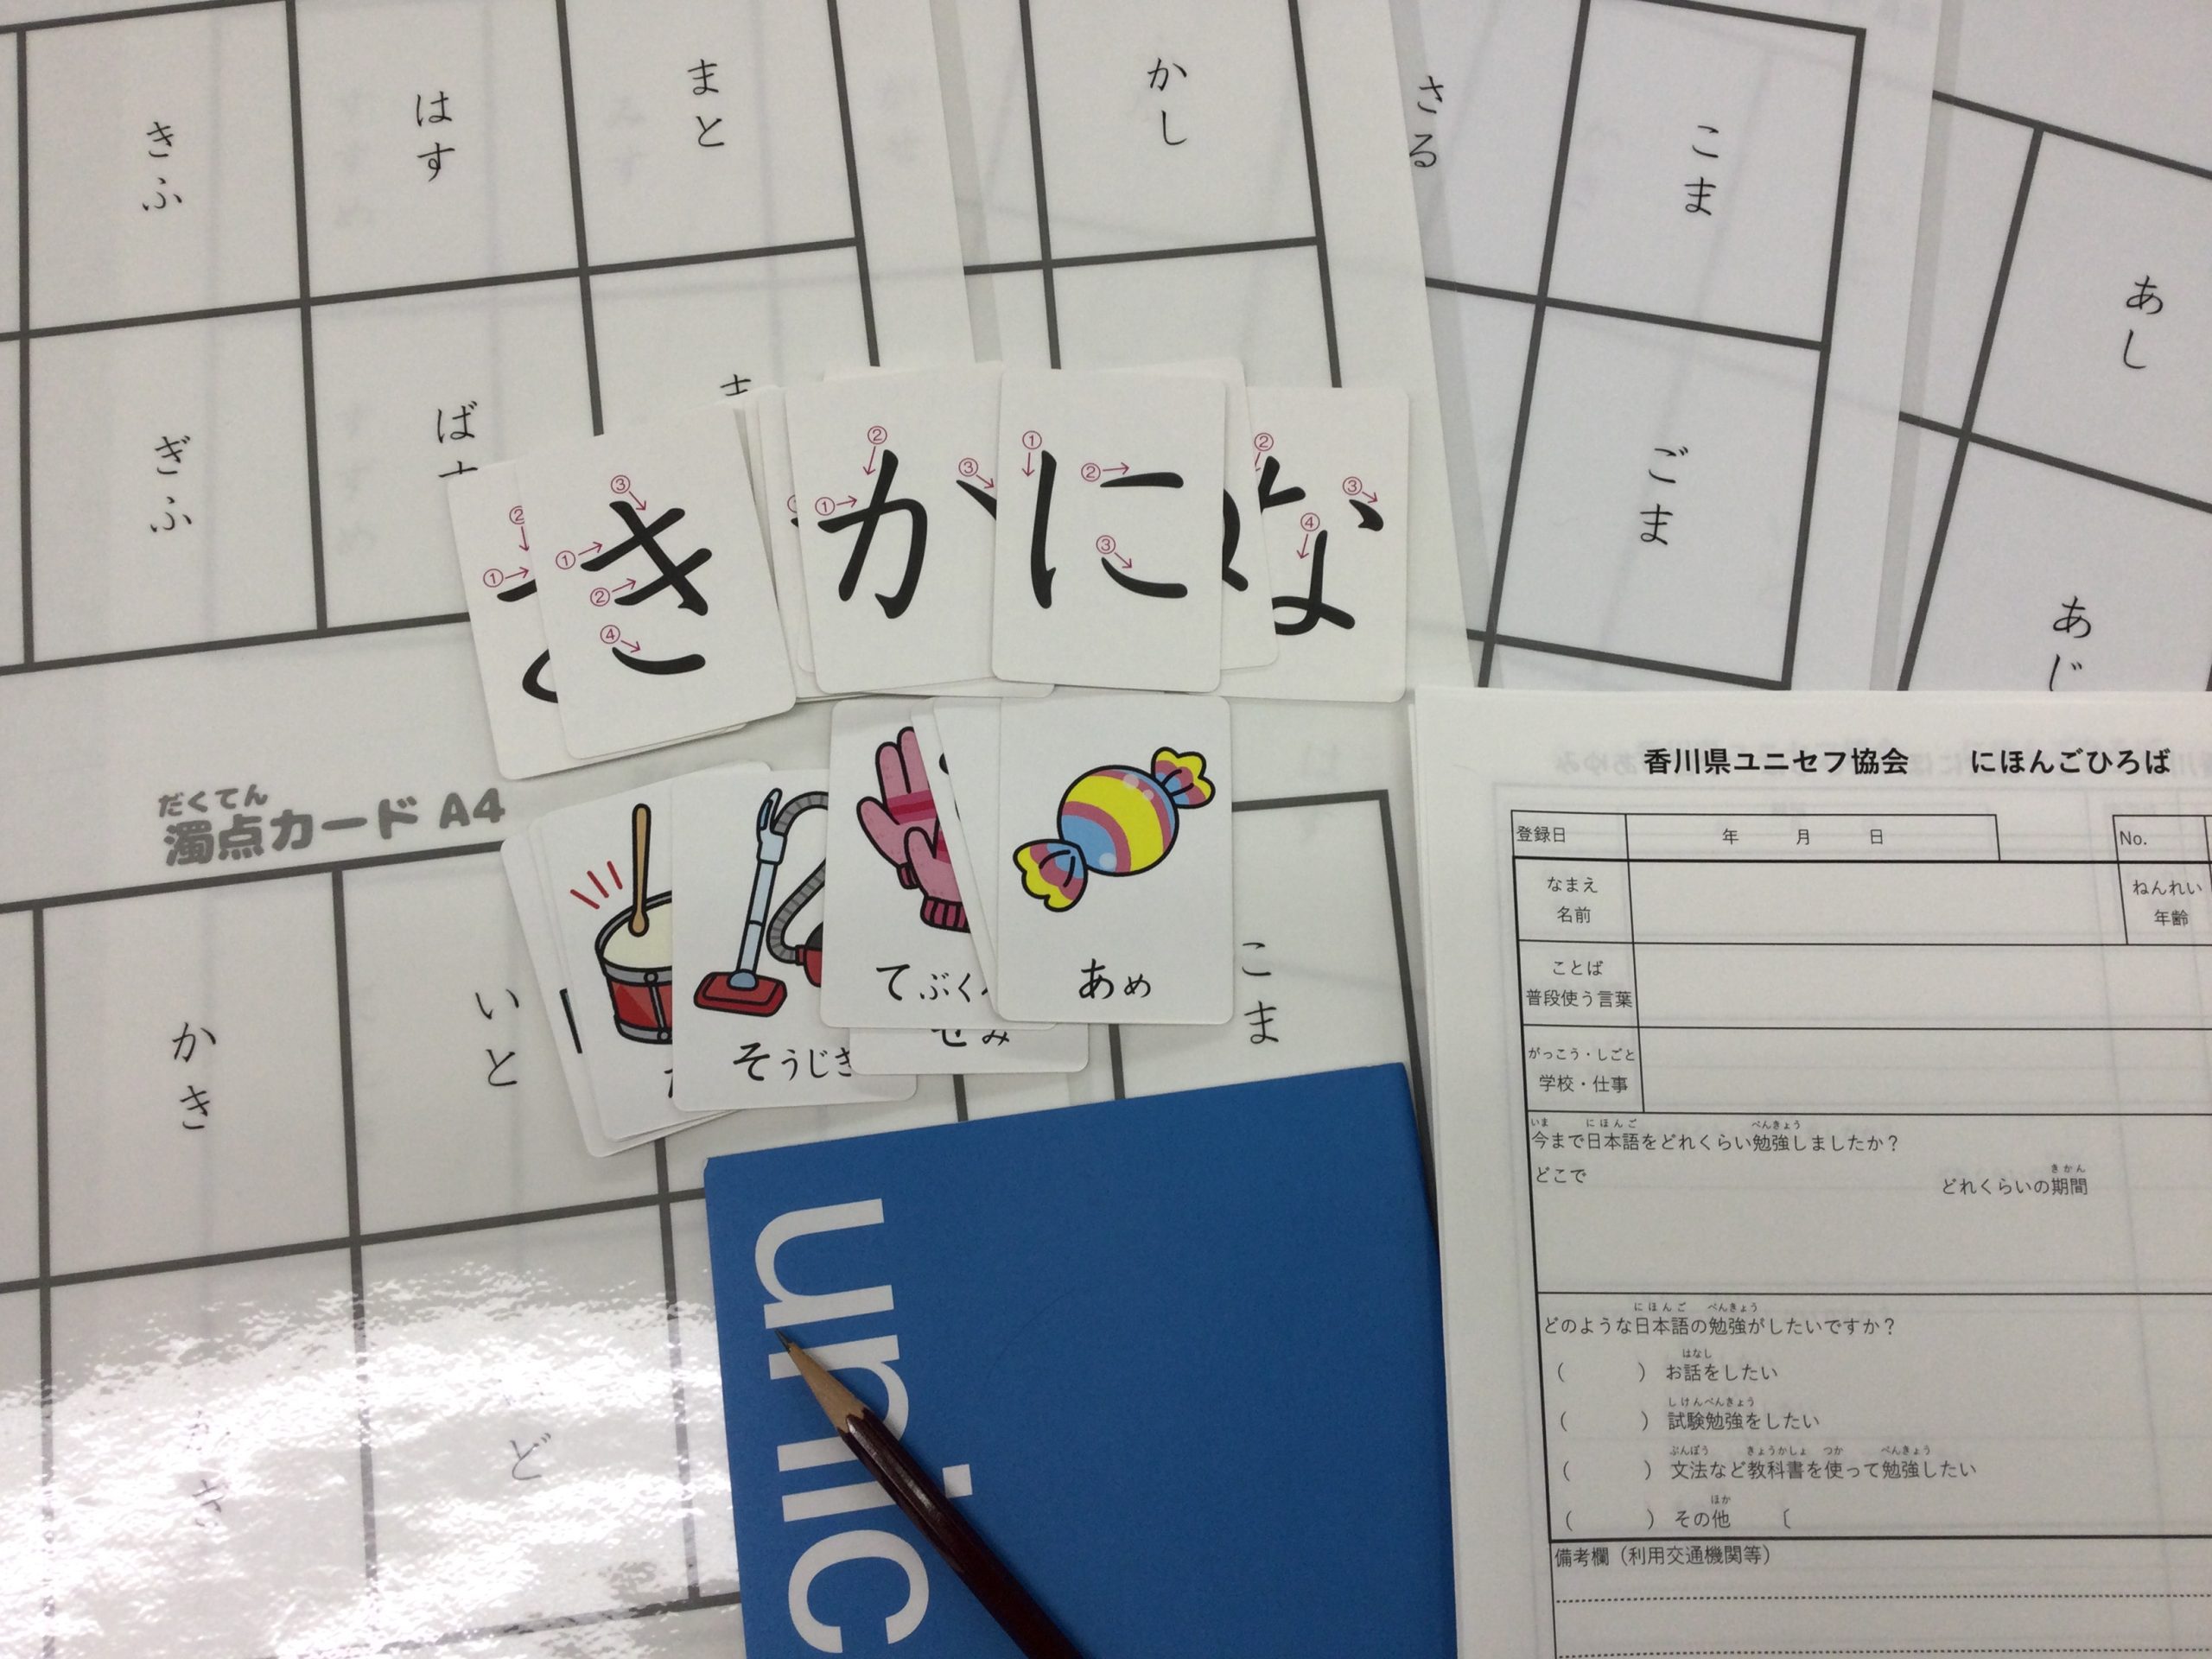 きふ
はす
まと
かし
さる
こま
あし
ぎふ
ごま
あじ
③
①
②
④
き
②
①
③
か
①
②
③
に
②
③
④
な
②
①
だくてん
濁点カード A4
そうじき
あめ
せみ
かき
いと
こま
ど
unic
香川県ユニセフ協会 にほんごひろば
登録日 年 月 日 No.
なまえ
名前
ねんれい
年齢
ことば
普段使う言葉
がっこう・しごと
学校・仕事
いま にほんご べんきょう
今まで日本語をどれくらい勉強しましたか？
どこで
きかん
どれくらいの期間
にほんご べんきょう
どのような日本語の勉強がしたいですか？
はなし
( ) お話をしたい
しけんべんきょう
( ) 試験勉強をしたい
ぶんぽう きょうかしょ つか べんきょう
( ) 文法など教科書を使って勉強したい
ほか
( ) その他 〔
備考欄（利用交通機関等）